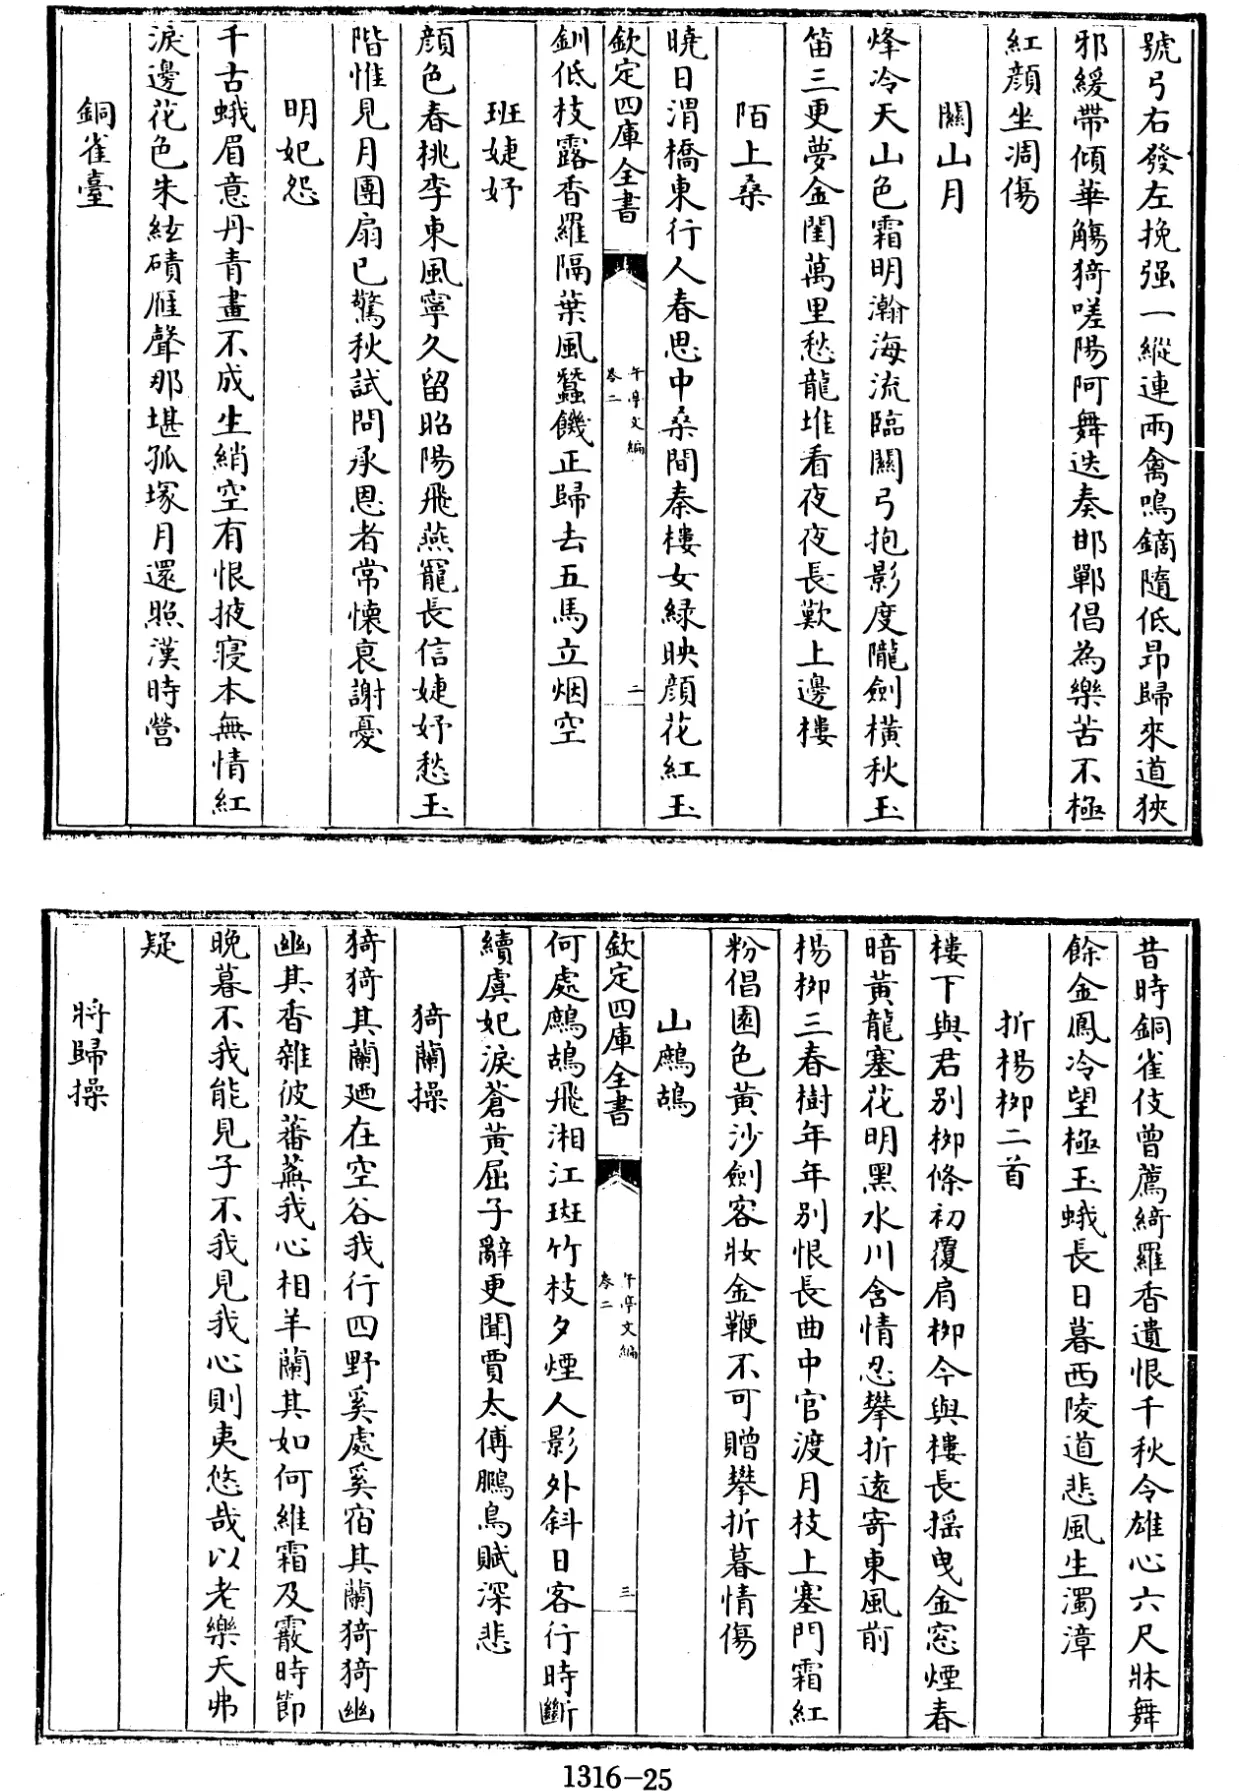 號弓右發左挽强一縱連兩禽鳴鏑隨低昂歸來道狹
邪緩帶傾華觴猗嗟陽阿舞迭奏邯鄲倡為樂苦不極
紅顔坐凋傷
關山月
烽冷天山色霜明瀚海流臨關弓抱影度隴劍横秋玉
笛三更夢金閨萬里愁龍堆看夜夜長歎上邊樓
陌上桑
曉日渭橋東行人春思中桑間秦樓女緑映顔花紅玉
欽定四庫全書
午亭文編
卷二
二
釧低枝露香羅隔葉風蠶饑正歸去五馬立烟空
班婕妤
顔色春桃李東風寧久留昭陽飛燕寵長信婕妤愁玉
階惟見月團扇已驚秋試問承恩者常懷衰謝憂
明妃怨
千古蛾眉意丹青畫不成生綃空有恨掖寢本無情紅
淚邊花色朱絃磧雁聲那堪孤塚月還照漢時營
銅雀臺
昔時銅雀伎曾薦綺羅香遺恨千秋令雄心六尺牀舞
餘金鳳冷望極玉蛾長日暮西陵道悲風生濁漳
折楊柳二首
樓下與君别柳條初覆肩柳今與樓長揺曳金窓煙春
暗黄龍塞花明黑水川含情忍攀折逺寄東風前
楊柳三春樹年年别恨長曲中官渡月枝上塞門霜紅
粉倡園色黄沙劍客妝金鞭不可贈攀折暮情傷
山鷓鴣
何處鷓鴣飛湘江斑竹枝夕煙人影外斜日客行時斷
欽定四庫全書
午亭文編
卷二
三
續虞妃淚蒼黄屈子辭更聞賈太傅鵩鳥賦深悲
猗蘭操
猗猗其蘭迺在空谷我行四野奚處奚宿其蘭猗猗幽
幽其香雜彼蕃蕪我心相羊蘭其如何維霜及霰時節
晚暮不我能見子不我見我心則夷悠哉以老樂天弗
疑
將歸操
1316-25